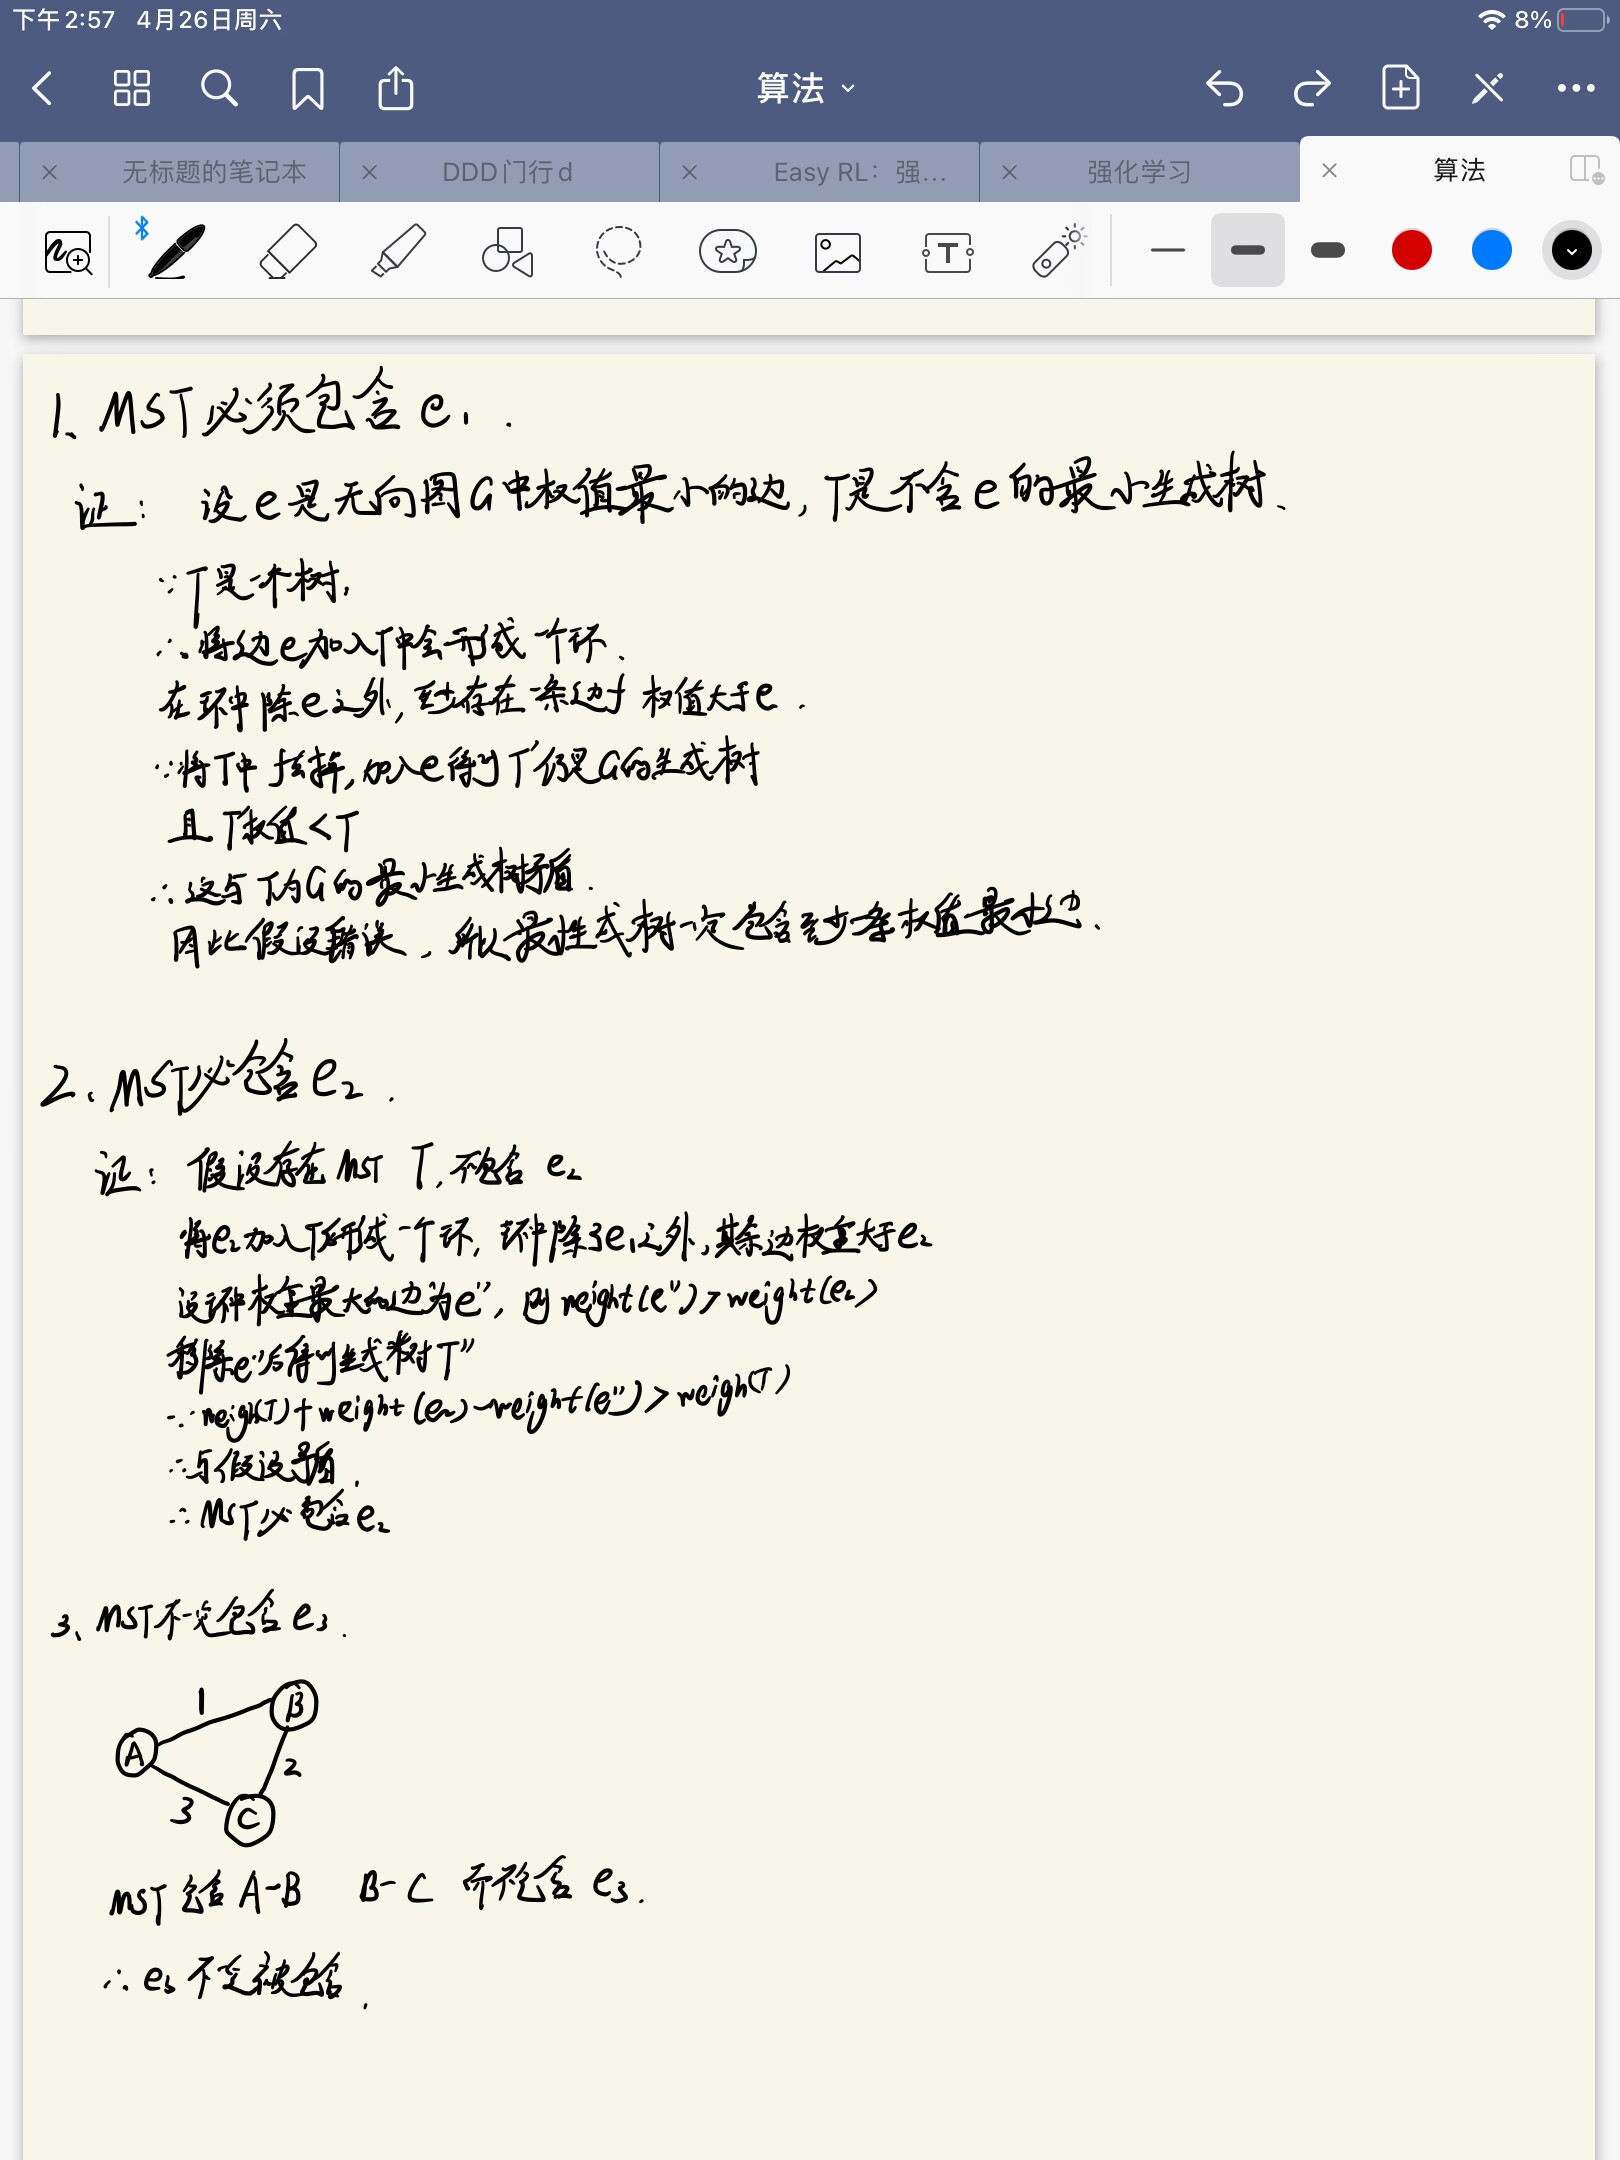 下午2:57 4月26日周六
8%
算法
无标题的笔记本
DDD门行d
Easy RL：强...
强化学习
算法
1、MST必须包含e₁.
证： 设e是无向图G中权值最小的边，T是不含e的最小生成树、
∵T是一个树，
∴将边e加入T中会形成一个环.
在环中除e之外，至少存在一条边f 权值大于e.
∵将T中f去掉，加入e得到T'仍是G的生成树
且T'权值<T
∴这与T为G的最小生成树矛盾.
因此假设错误，所以最小生成树一定包含至少一条权值最小边、
2、MST必包含e₂.
证： 假设存在MST T，不包含e₂
将e₂加入T后形成一个环，环中除了e₁之外，其余边权重大于e₂
设环中权重最大的边为e''，则weight(e'')>weight(e₂)
移除e''后得到生成树T''
∵weigh(T)+weight(e₂)-weight(e'')>weigh(T)
∴与假设矛盾.
∴MST必包含e₂
3、MST不一定包含e₃.
1
B
A
2
3
C
MST包含A-B B-C 而不包含e₃.
∴e₃不一定被包含.